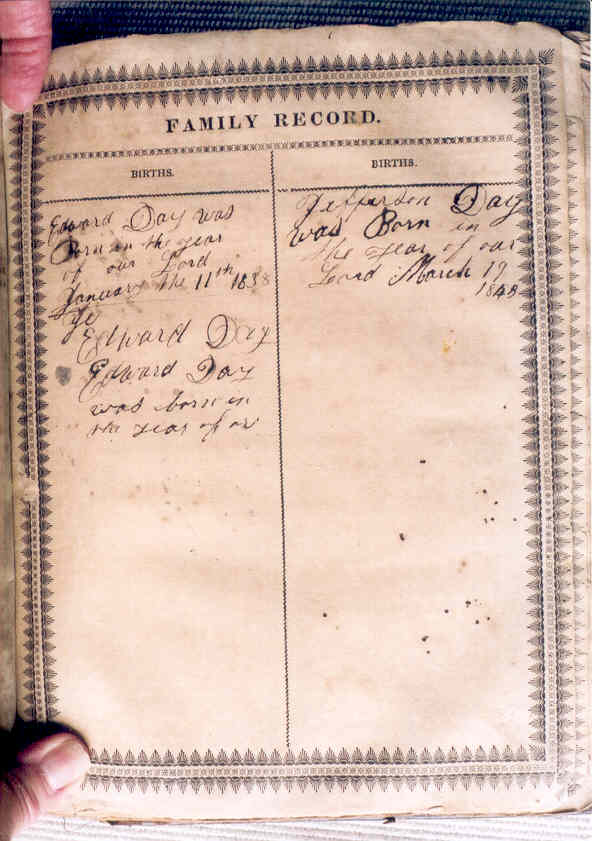 FAMILY RECORD.
BIRTHS.
Edward Day was
Born in the year
of our Lord
January the 11th 1838
Je
Edward Day
Edward Day
was born in
the year of or
BIRTHS.
Jefferson Day
was Born in
the year of our
Lord March 19
1848